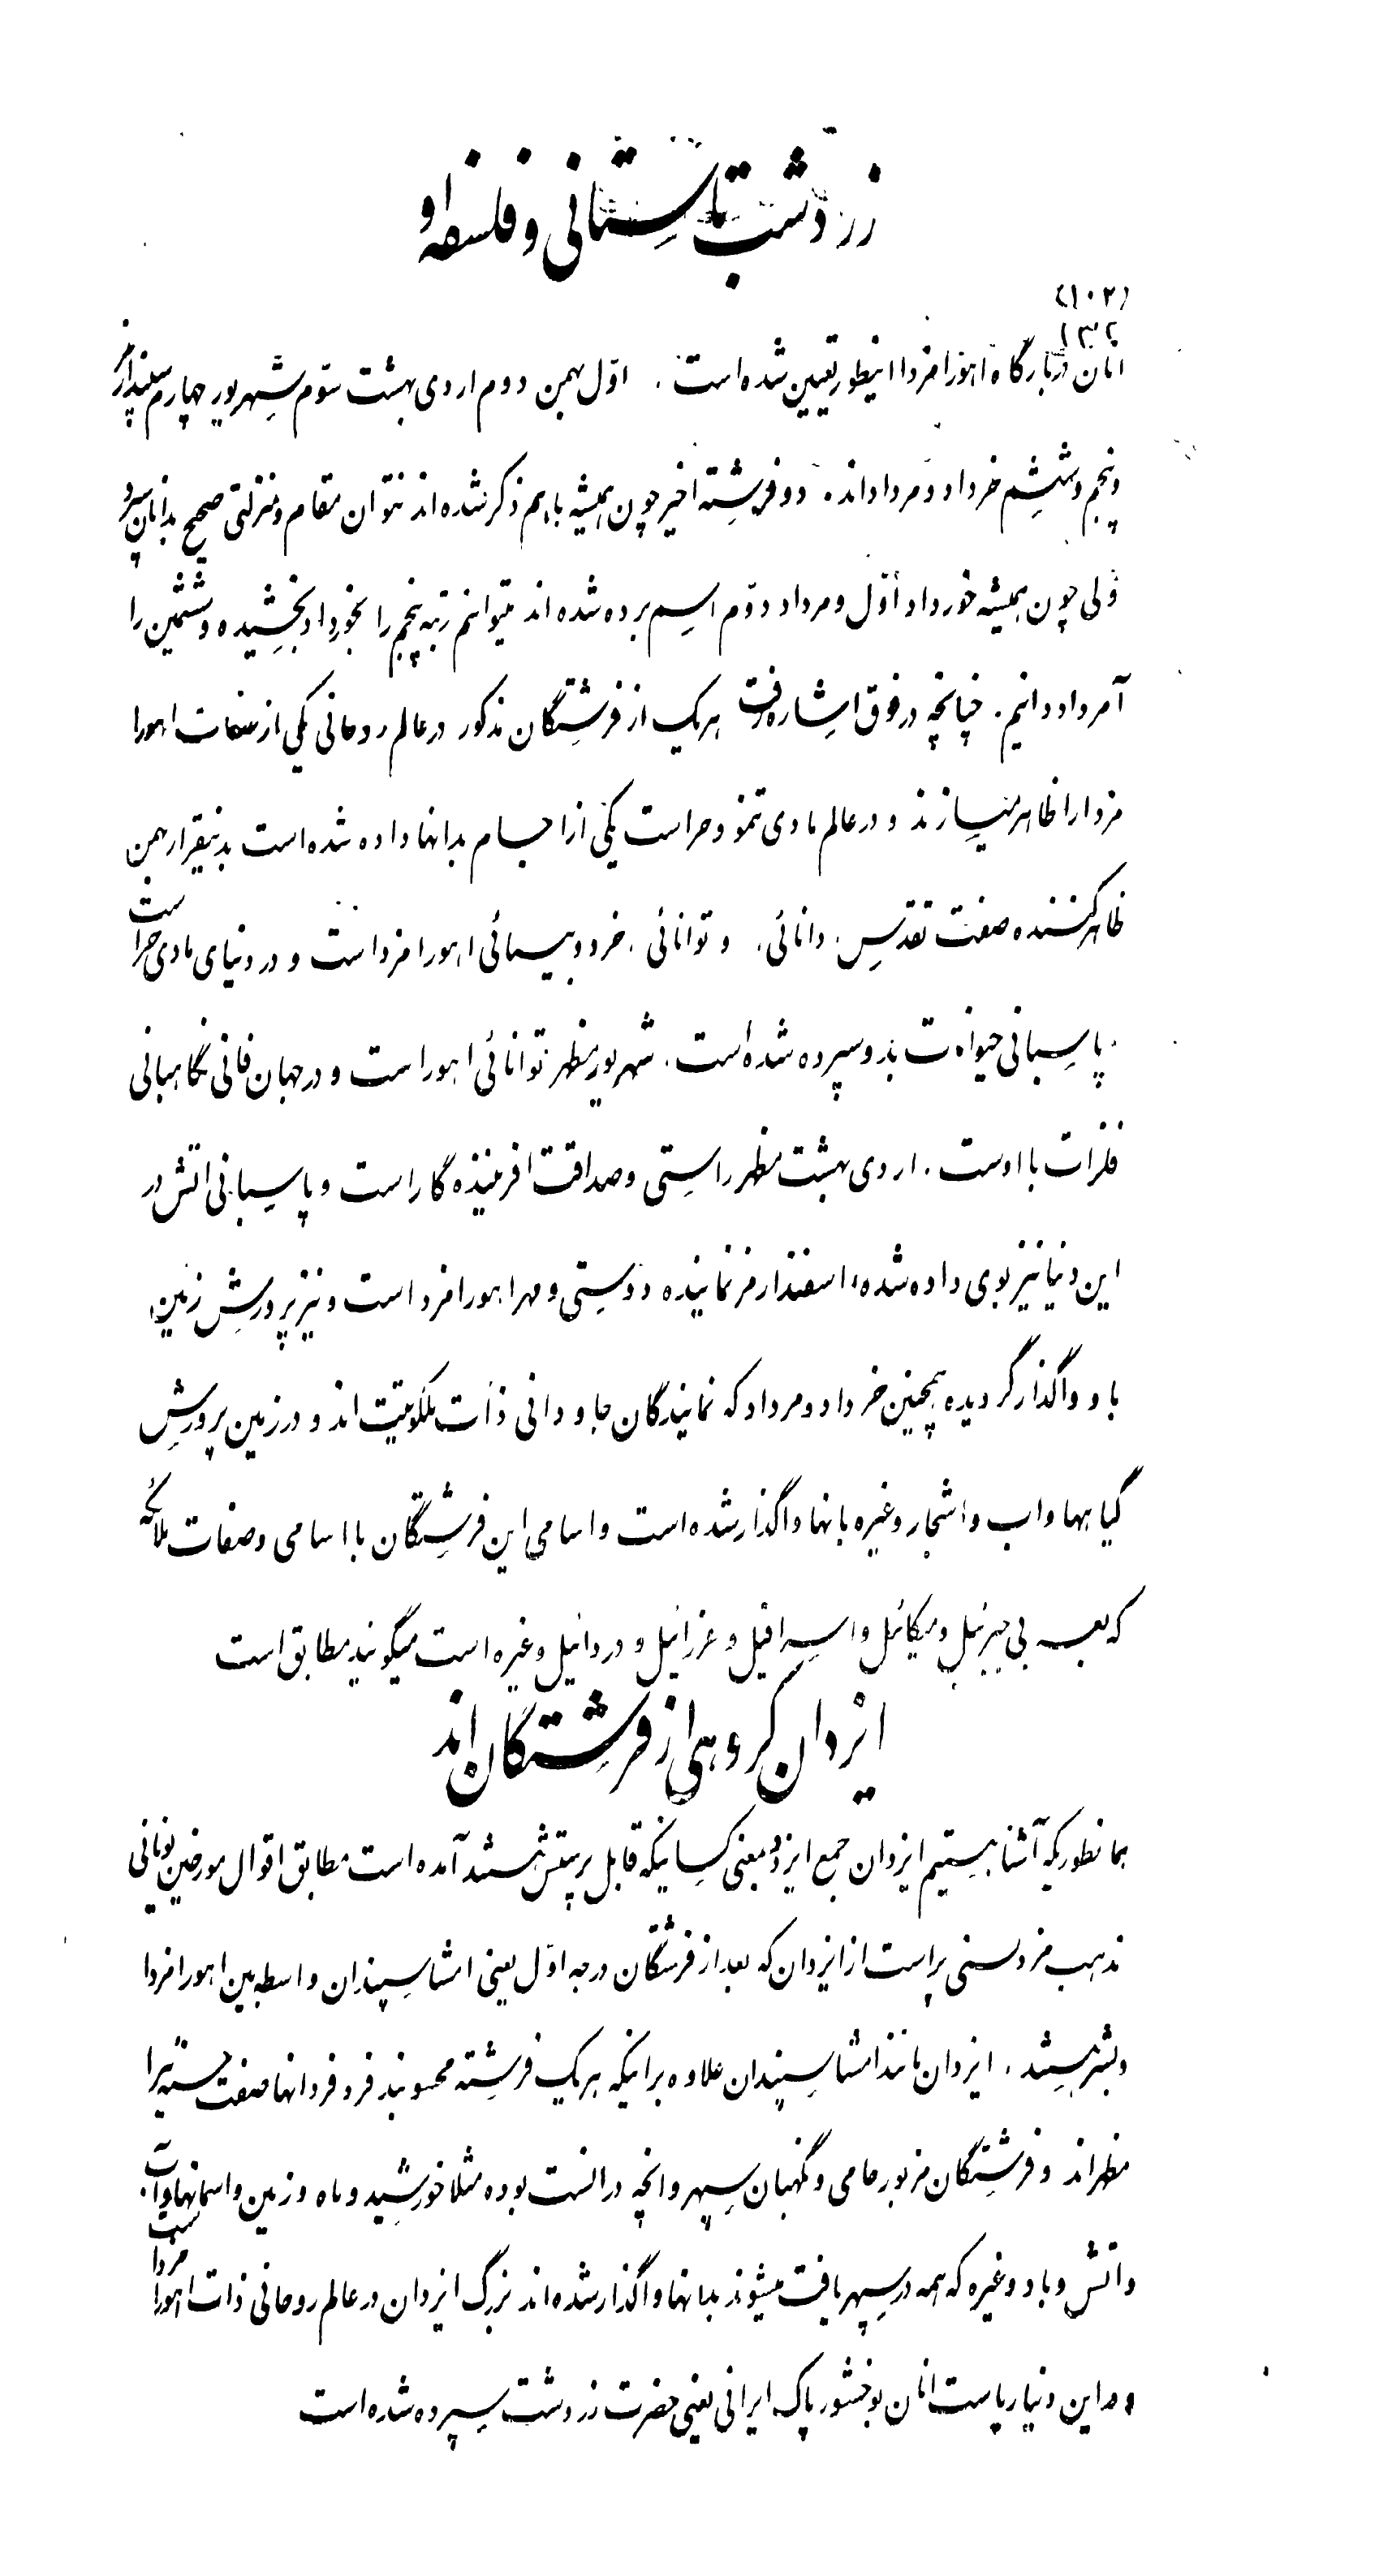 زردشت باستانی و فلسفه او
(۱۰۲)
۱۳۲
انان دربارگاه اهورا مزدا اینطور تعیین شده است . اوّل بهمن دوم اردی بهشت سوّم شهریور چهارم سفندارمز
وپنجم وششم خرداد ومرداداند . دو فرشته اخیر چون همیشه باهم ذکر شده اند نتوان مقام ومنزلتی صحیح بدانان
ولی چون همیشه خورداد اوّل ومرداد دوّم اسم برده شده اند میتوانم رتبه پنجم را بخورداد بخشیده وششمین را
آمرداد دانیم . چنانچه در فوق اشاره رفت هریک از فرشتگان مذکور در عالم روحانی یکی از صفات اهورا
مزدا را ظاهر میسازند و در عالم مادی نمو وحراست یکی از اجسام بدانها داده شده است بدینقرار بهمن
ظاهر کننده صفت تقدیس . دانائی . و توانائی . خرد و بینائی اهورا مزدا است و در دنیای مادی حراست
پاسبانی حیوانات بدو سپرده شده است . شهریور مظهر توانائی اهورا است و در جهان فانی نگاهبانی
فلزات با اوست . اردی بهشت مظهر راستی وصداقت افرینذه گار است و پاسبانی اتش در
این دنیا نیز بوی داده شده، اسفندارمز نماینده دوستی ومهر اهورا مزد است ونیز پرورش زمین
باو واگذار گردیده همچنین خرداد ومرداد که نمایندگان جاودانی ذات ملکوتیت اند و در زمین پرورش
گیاهها واب واشجار وغیره بانها واگذار شده است واسامی این فرشتگان با اسامی وصفات ملائکه
که بعربی جبرئیل ومیکائیل واسرافیل وعزرائیل و دردائیل وغیره است میگویند مطابق است
ایزدان گروهی از فرشتگان اند
همانطوریکه آشنا هستیم ایزدان جمع ایزد وبمعنی کسانیکه قابل پرستش هستند آمده است مطابق اقوال مورخین یونانی
مذهب مزدیسنی پر است از ایزدان که بعد از فرشتگان درجه اوّل یعنی امشاسپندان واسطه بین اهورا مزدا
وبشر هستند . ایزدان مانند امشاسپندان علاوه برانیکه هریک فرشته محسوبند فرد فرد انها صفت حسنه را
مظهراند وفرشتگان مزبور حامی ونگهبان سپهر وانچه در انست بوده مثلا خورشید وماه وزمین واسمانها وآب
واتش وباد وغیره که همه در سپهر یافت میشوند بدانها واگذار شده اند بزرگ ایزدان در عالم روحانی ذات اهورا مزدا است
ودر این دنیا ریاست انان بوخشور پاک ایرانی یعنی حضرت زردشت سپرده شده است